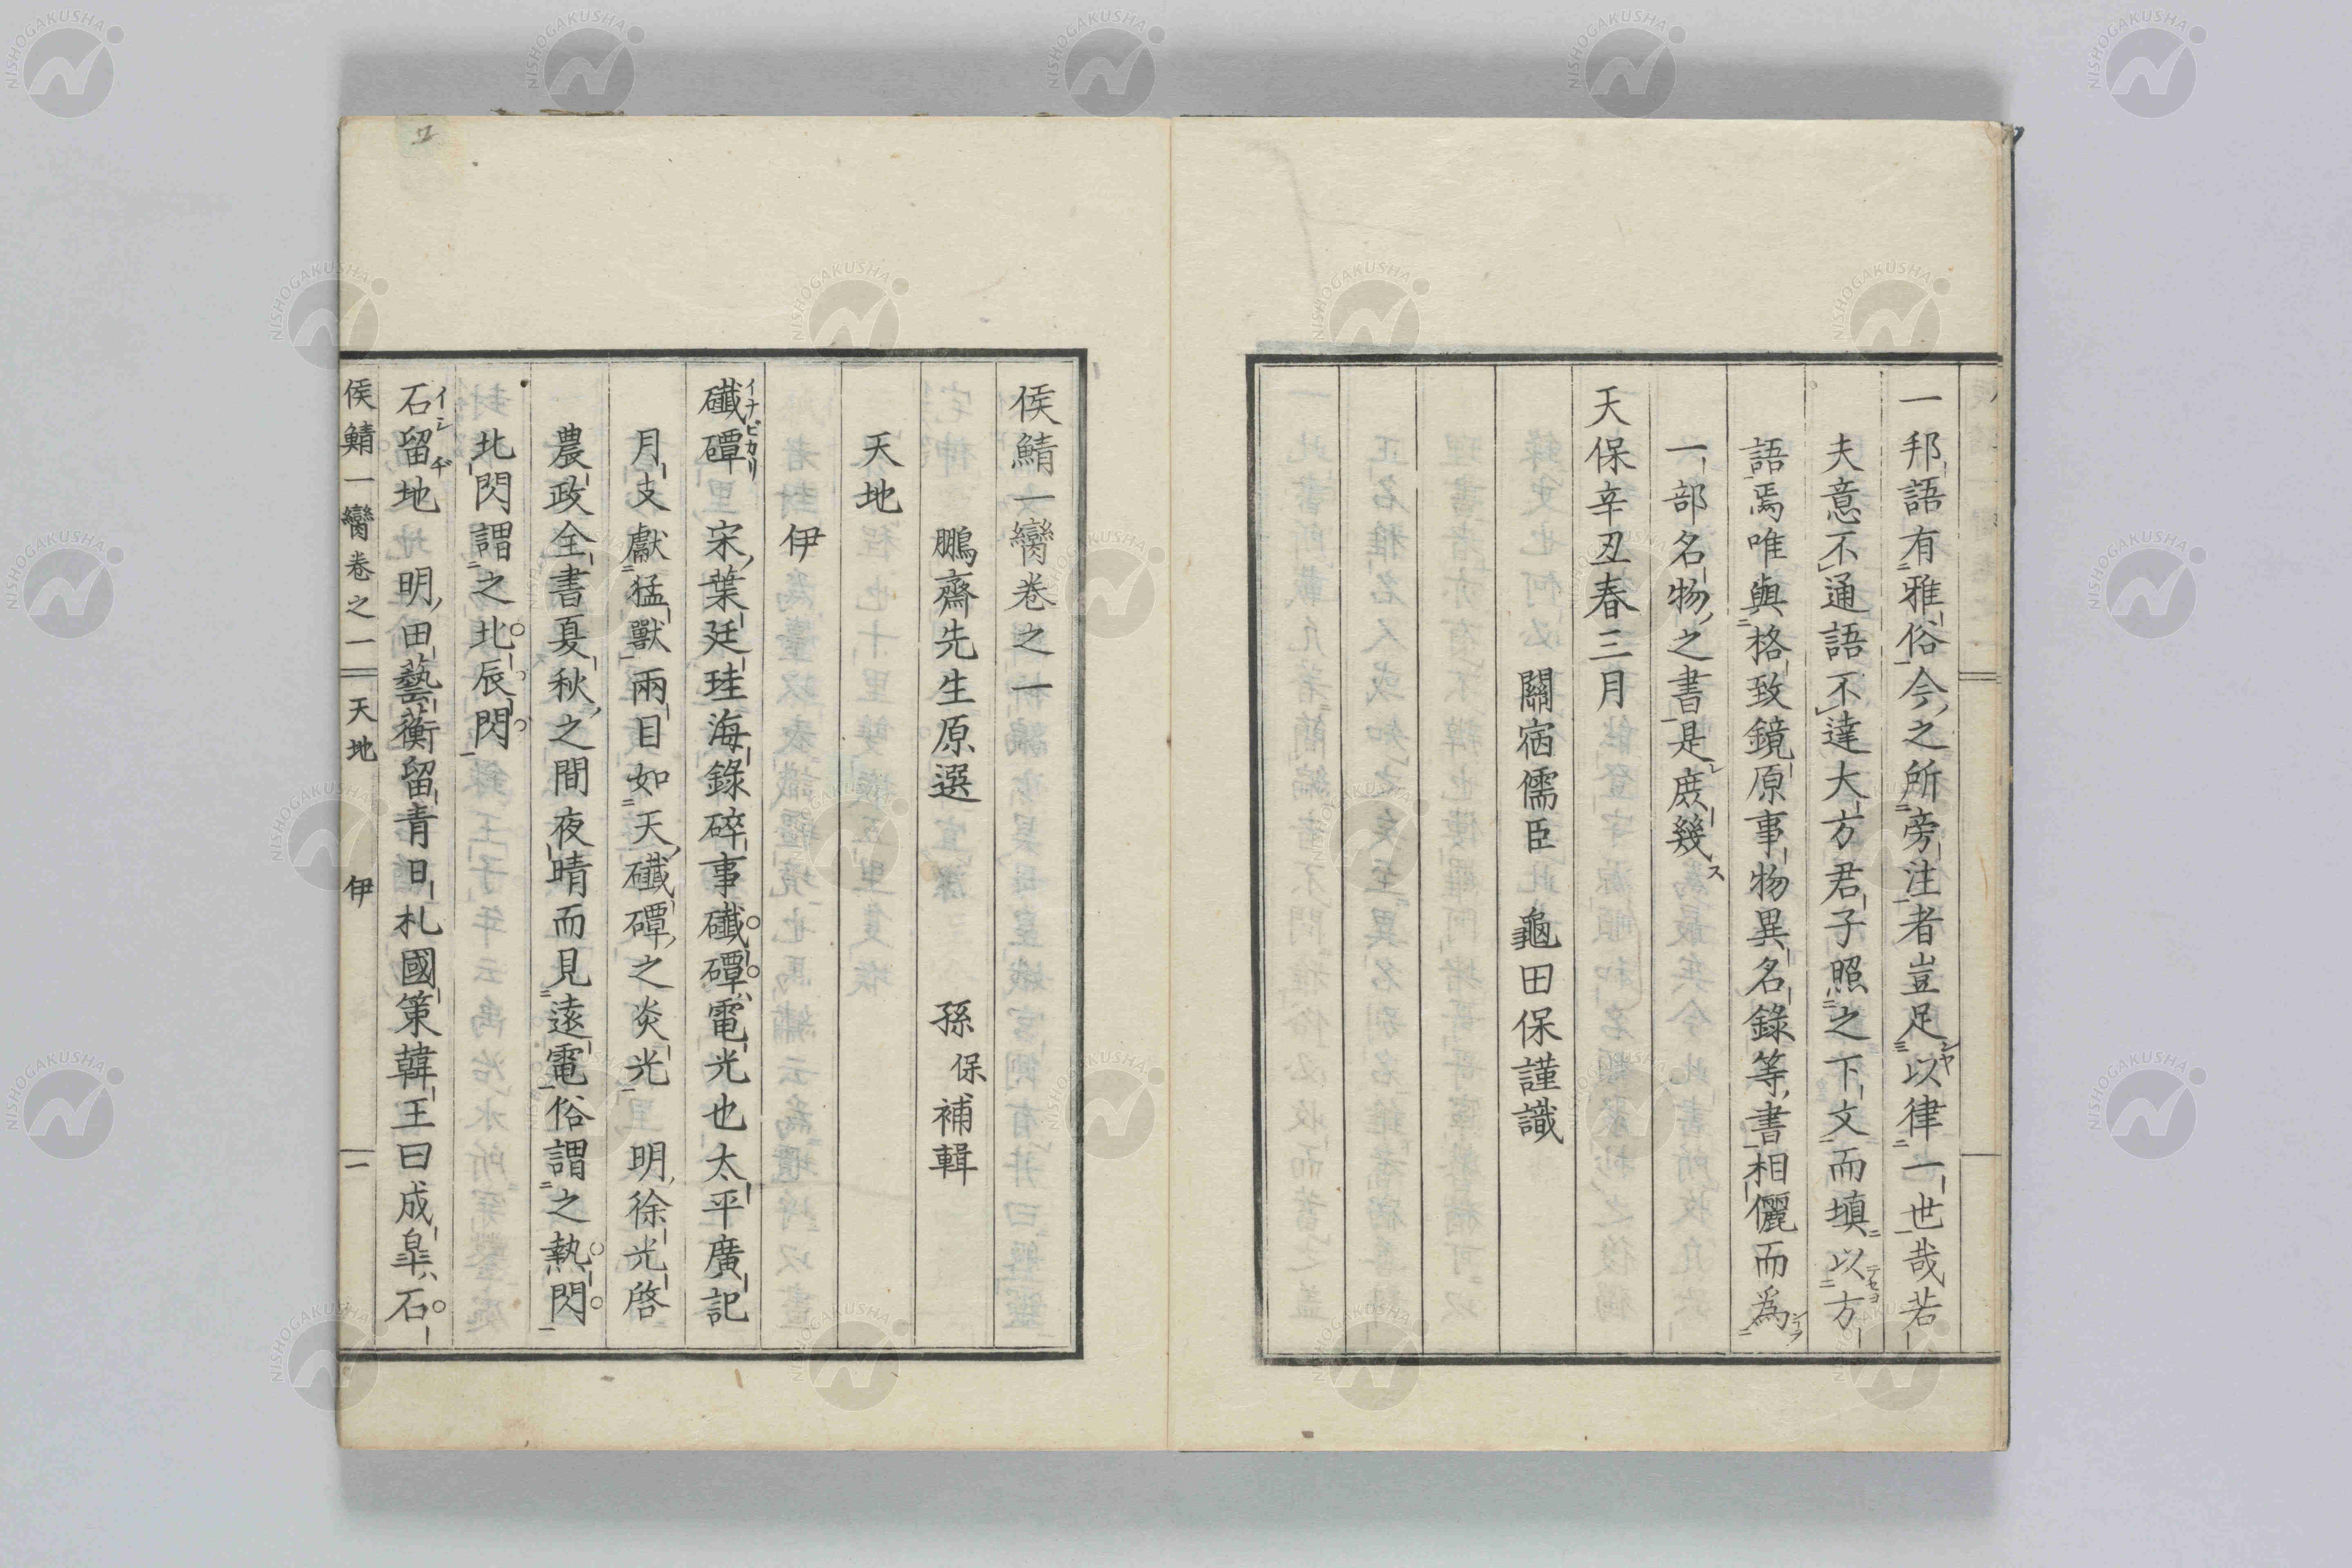 一邦語有雅俗今之所旁注者豈足以律一世哉若
夫意不通語不達大方君子照之下文而填以方
語焉唯與格致鏡原事物異名錄等書相儷而爲
一部名物之書是庶幾
天保辛丑春三月
關宿儒臣 龜田保謹識
侯鯖一臠卷之一
鵬齋先生原選 孫保補輯
天地
伊
礟礩 宋葉廷珪海錄碎事電光也太平廣記
月支獻猛獸兩目如天之炎光 明徐光啓
農政全書夏秋之間夜晴而見遠電俗謂之熱閃
北閃謂之北辰閃
石留地 明田藝蘅留青日札國策韓王曰成皐石
侯鯖一臠卷之一 天地 伊 一
イナビカリ
イシヂ
NISHOGAKUSHA